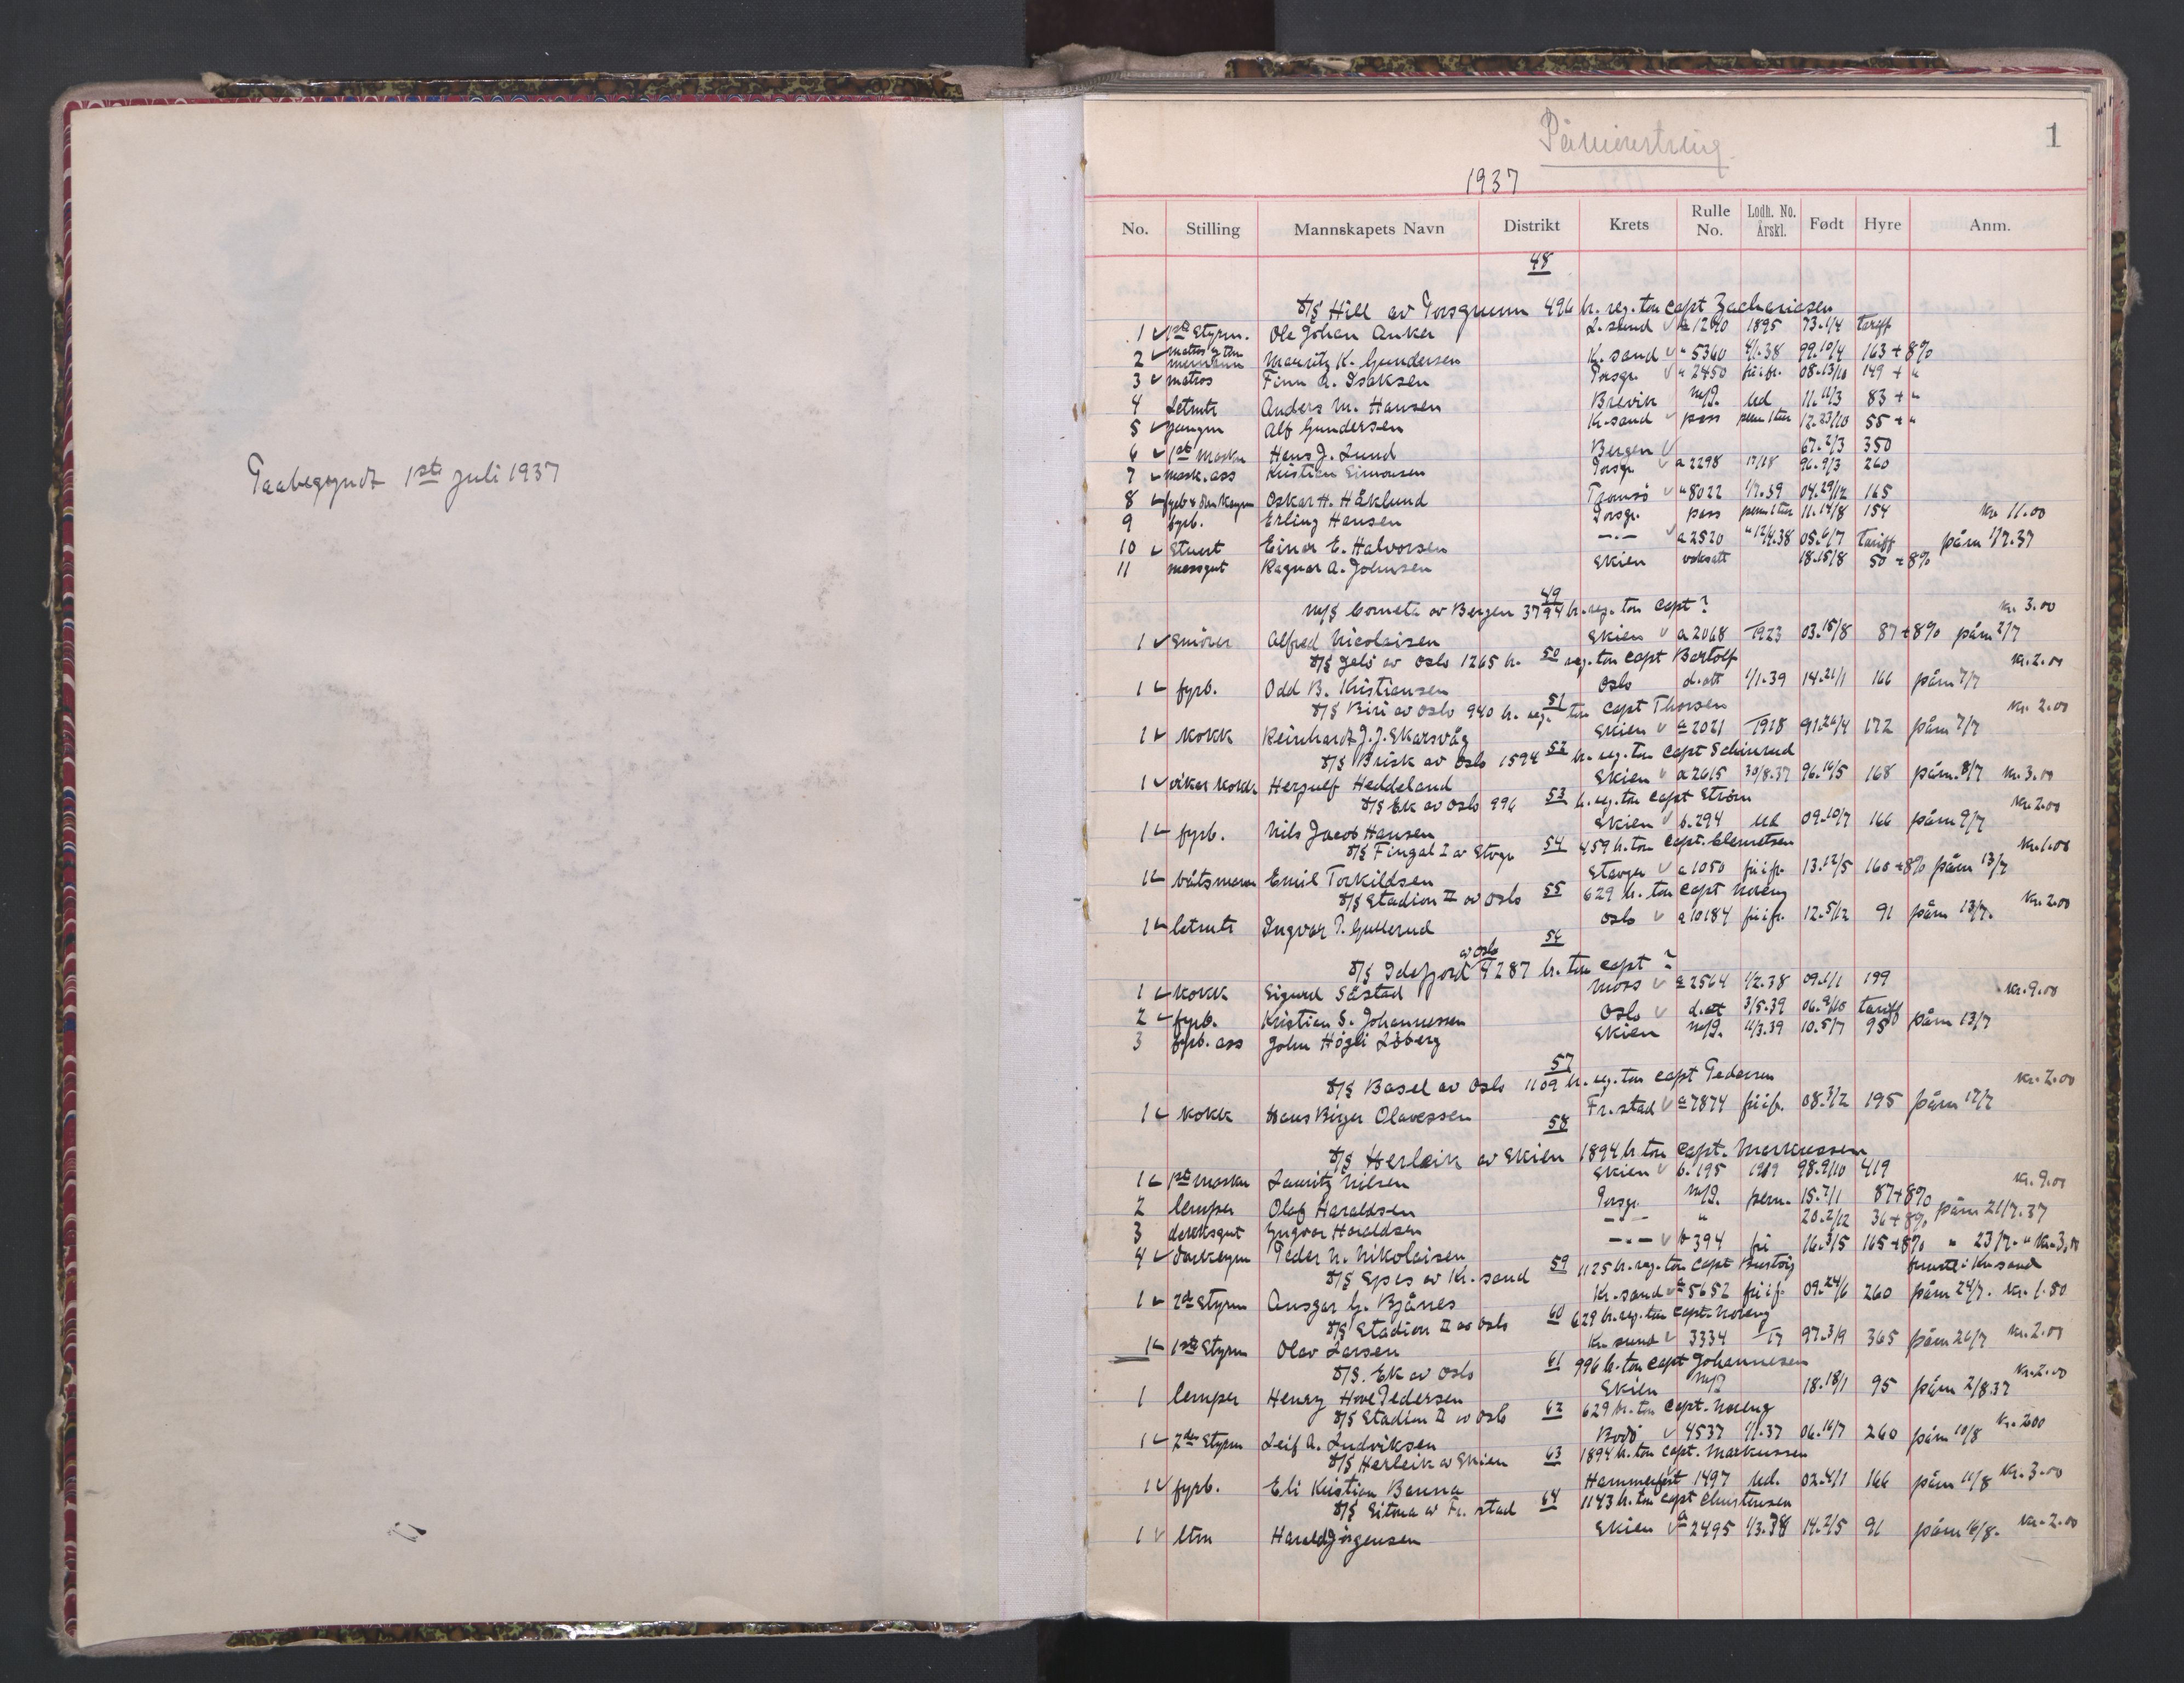 Paabegyndt 1ste juli 1937
Påmönstring
1
1937
No. Stilling Mannskapets Navn Distrikt Krets Rulle No. Lodh. No. Årskl. Født Hyre Anm.
48
D/S Hill av Porsgrunn 496 br. reg. ton Capt Zachariasen
1 1ste Styrm. Ole Johan Anker L.sund a 1240 1895 73.1/4 tariff
2 matros Mauritz K. Gundersen K.sand " 5360 4/1.38 99.10/4 163 + 8%
3 matros Finn A. Isaksen Porsgr. " 2450 fri i fr. 08.13/10 149 + "
4 Letmtr Anders M. Hansen Brevik m/J. Ud 11.11/3 83 + "
5 jungm Alf Gundersen Kr.sand pass perm 1 tur 12.23/10 55 + "
6 1ste Maskn Hans J. Lund Bergen 67.2/3 350
7 mask. ass Kristian Simonsen Porsgr. a 2298 17/18 96.9/3 260
8 fyrb & Oskar H. Håklund Tromsö " 8022 1/7.39 04.29/12 165
9 fyrb. Erling Hansen Porsgr. pass perm 1 tur 11.14/8 154 Kr. 11.00
10 Stuert Einar E. Halvorsen —.— a 2520 " 12/4.38 05.6/7 tariff påm 1/7.37
11 messgut Ragnar A. Johnsen Skien voksatt 18.15/8 50 + 8%
49
M/S Cometa av Bergen 3794 br. reg. ton Capt ?
Kr. 3.00
1 Smörer Alfred Nicolaisen Skien a 2068 1923 03.15/8 87+8% påm 2/7
50
D/S Jelö av Oslo 1265 br. reg. ton Capt Bartolf
Kr. 2.00
1 fyrb. Odd B. Kristiansen Oslo d.att 1/1.39 14.21/1 166 påm 7/7
51
D/S Biri av Oslo 940 br. reg. ton Capt Thorsen
Kr. 2.00
1 kokk Reinhardt J. J. Skarsvåg Skien a 2021 1918 91.26/4 172 påm 7/7
52
D/S Brisk av Oslo 1594 br. reg. ton Capt Schinrud
1 vikar kokk Hergulf Heddeland Skien a 2615 30/8.37 96.16/5 168 påm. 8/7 Kr. 3.00
53
D/S Ek av Oslo 996 br. reg. ton Capt Ström
Kr. 2.00
1 fyrb. Nils Jacob Hansen Skien b. 294 Ud 09.10/7 166 påm 9/7
54
D/S Fingal I av Stvgr 459 br. ton Capt. Clemetsen
Kr. 1.00
1 båtsmann Emil Torkildsen Stavgr a 1050 fri i fr. 13.12/5 160 +8% påm 13/7
55
D/S Stadion II av Oslo 629 br. ton Capt Noreng
Kr. 2.00
1 letmtr Ingvar P. Gullerud Oslo a 10184 fri i fr. 12.5/12 91 påm 13/7.
56
D/S Idefjord av Oslo 4287 br. ton Capt ?
1 kokk Sigurd Såstad Moss a 2564 1/2.38 09.1/1 199 Kr. 9.00
2 fyrb. Kristian S. Johannessen Oslo d.att 3/5.39 06.9/10 tariff
3 fyrb. ass John Högli Löberg Skien m/J. 11/3.39 10.5/7 95 påm 13/7
57
D/S Basel av Oslo 1109 br. reg. ton Capt Pedersen
Kr. 2.00
1 kokk Hans Birger Olavessen Fr.stad a 7874 fri i fr. 08.3/2 195 påm 17/7
58
D/S Herleik av Skien 1894 br. ton Capt. Markussen
1 1ste maskn Lauritz Nilsen Skien b. 195 1919 98.9/10 419 Kr. 9.00
2 lemper Olaf Haraldsen Porsgr. m/J. perm. 15.7/1 87+8%
3 dekksgut Yngvar Haraldsen —.— " 20.2/12 36 + 8% påm 21/7.37
4 donkeym Peder N. Nikolaisen —.— b 394 fri 16.3/5 165 +8% " 23/7. " Kr. 3.00
59
D/S Spes av Kr.sand 1125 br. reg. ton Capt
1 2de Styrm Ansgar G. Bjånes Kr.sand a 5652 fri i f. 09.24/6 260 påm 24/7. Kr. 1.50
60
D/S Stadion II av Oslo 629 br. reg. ton Capt. Noreng
1 1ste Styrm Olav Larsen Kr.sund 3334 17 97.3/9 365 påm 26/7 Kr. 2.00
61
D/S. Ek av Oslo 996 br. ton Capt Johannesen
1 lemper Henry Hove Pedersen Skien m/J 18.18/1 95 påm 2/8.37 Kr. 2.00
62
D/S Stadion II av Oslo 629 br. ton Capt. Noreng
1 2den Styrm Leif A. Ludviksen Bodö 4537 1/1.37 06.16/7 260 påm 10/8 Kr. 2.00
63
D/S Herleik av Skien 1894 br. ton Capt. Markussen
1 fyrb. Eli Kristian Banna Hammerfest 1497 Ud. 02.4/1 166 påm 11/8 Kr. 3.00
64
D/S Sitona av Fr. stad 1143 br. ton Capt Christensen
1 ltm Harald Jörgensen Skien a 2495 1/3.38 14.2/5 91 påm 16/8. Kr. 2.00